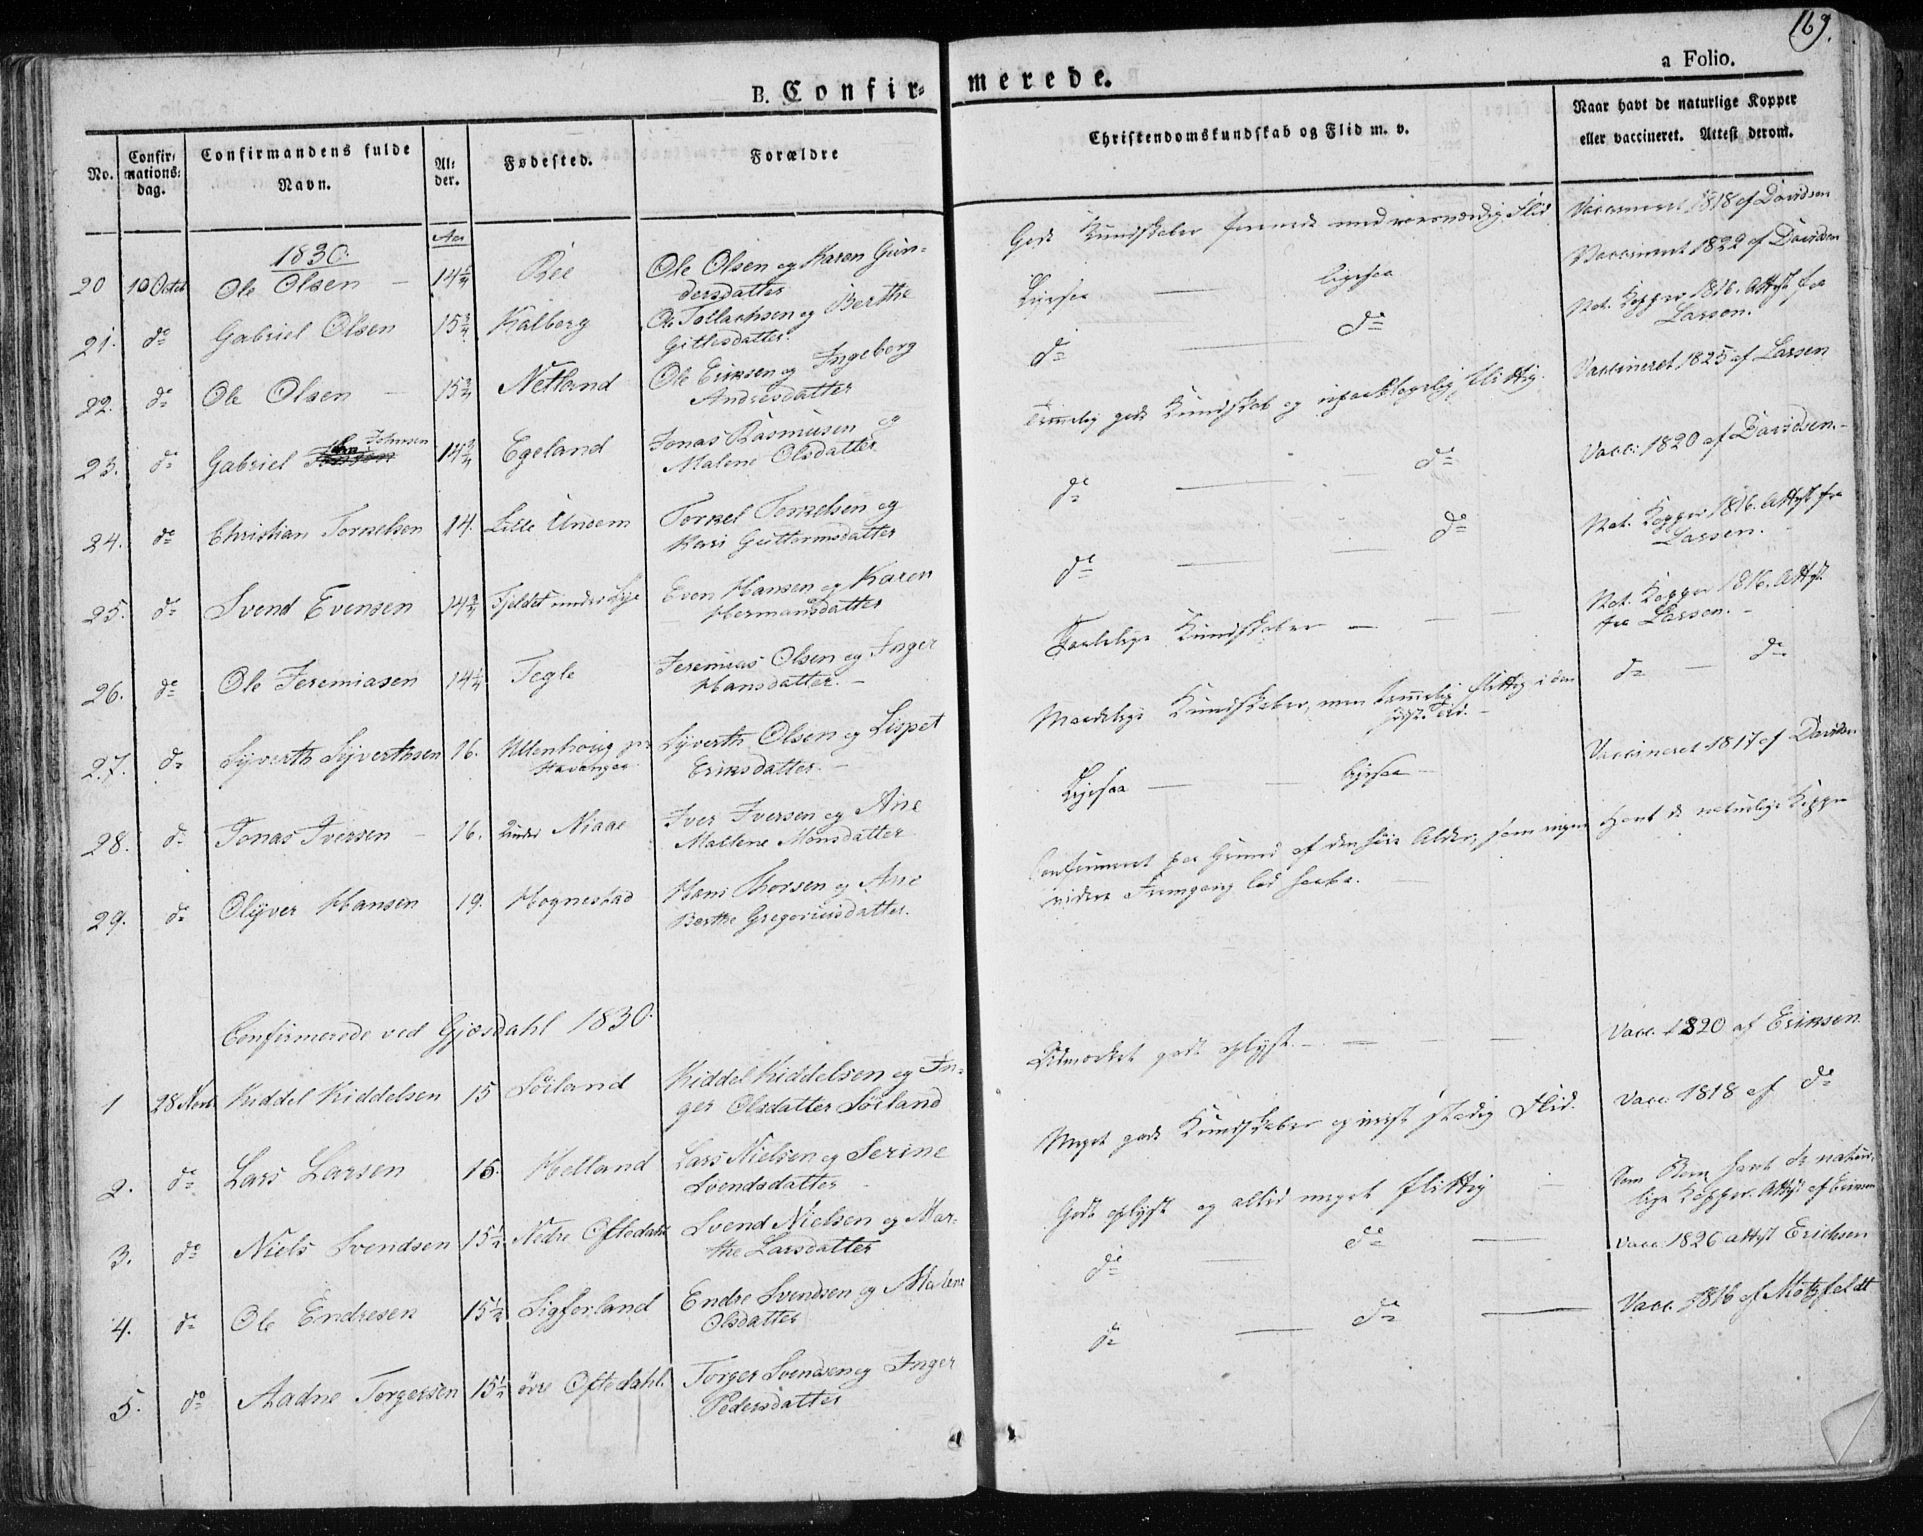 169.
a Folio.
B. Confir- merede.
No.
Confir-
mations-
dag.
Confirmandens fulde
Navn.
Al-
der.
Fødested.
Forældre
Christendomskundskab og Flid m. v.
Naar havt de naturlige Kopper
eller vaccineret. Attest derom.
1830.
Aar
20 10 Octob Ole Olsen – 14 3/4 Ree Ole Olsen og Karen Gun-
dersdatter
Gode Kundskaber forenede med roesværdig Flid
Vaccineret 1818 af Davidsen
21. do Gabriel Olsen 15 3/4 Kalberg Ole Tollachsen og Berthe
Gitlesdatter.
Ligesaa — ligesaa
Vaccineret 1822 af Davidsen
22. do Ole Olsen – 15 3/4 Netland Ole Eriksen og Ingeborg
Andresdatter
do — do
Nat. Kopper 1816. Attest fra
Larsen.
23. do Gabriel Johnsen 14 3/4 Egeland Jonas Rasmusen og
Malene Olsdatter
Temmelig gode Kundskab og upaaklagelig flittig.
Vaccineret 1825 af Larsen
24. do Christian Torkelsen 14. Litle Undem Torkel Torkelsen og
Kari Guttormsdatter
do — do
Vacc. 1820 af Davidsen.-
25. do Svend Evensen 14 3/4 Fjeldet under Lye Even Hansen og Karen
Hermansdatter
do — do
Nat. Kopper 1816. Attest fra
Larsen.
26. do Ole Jeremiasen 14 1/4 Tegle Jeremias Olsen og Inger
Hansdatter. –
Taalelige Kundskaber – – –
Nat. Kopper 1816. Attest
fra Larsen. –
27. do Syverth Syverthsen 16. Ullenhoug
Stavanger Syverth Olsen og Lispet
Eriksdatter. –
Maadelige Kundskaber, men temmelig flittig i den
sidste Tid. –
do — do
28. do Jonas Iversen – 16. under Niaae Iver Iversen og Ane
Mallene Monsdatter
Ligesaa — ligesaa –
Vaccineret 1817 af Davidsen
29. do Olyver Hansen 19. Hognestad Hans Thorsen og Ane
Berthe Gregoriusdatter.
Confirmeret paa Grund af den høie Alder, som ingen
videre Fremgang lod haabe. –
Havt de naturlige Kopper
Confirmerede ved Gjæsdahl 1830.
1 28 Nov Kiddel Kiddelsen 15 Søiland Kiddel Kiddelsen og In-
ger Olsdatter Søiland
Udmærket godt oplyst. – – – –
Vacc. 1820 af Eriksen.
2. do Lars Larsen 15. Helland Lars Nielsen og Serine
Svendsdatter
Meget gode Kundskaber og viist stadig Flid.
Vacc. 1818 af do
3. do Niels Svendsen 15 1/2 Nedre Oftedahl Svend Nielsen og Mar-
the Larsdatter
Godt oplyst og altid meget flittig –
Som Barn havt de natur-
lige Kopper. Attest af
4. do Ole Endresen 15 1/2 Sigferland Endre Svendsen og Malene
Olsdatter
do — do —
Vacc. 1826 attest Erichsen
5. do Aadne Torgersen 15 1/2 øvre Oftedahl. Torger Svendsen og Inger
Pedersdatter
do — do —
Vacc. 1816 af Motzfeldt